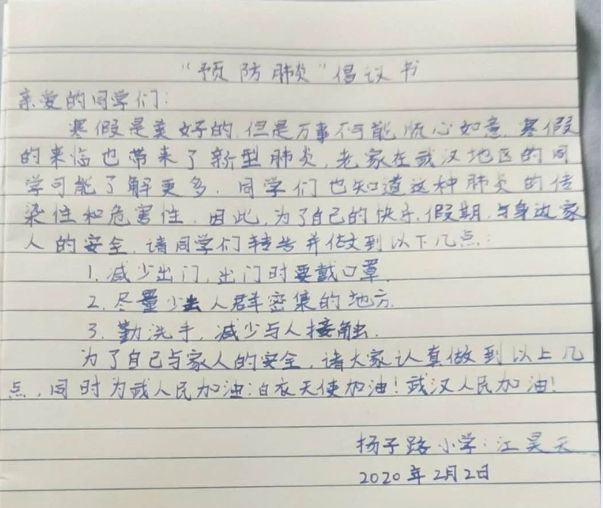 “预防肺炎”倡议书
亲爱的同学们：
寒假是美好的，但是万事不可能顺心如意，寒假
的来临也带来了新型肺炎，老家在武汉地区的同
学可能了解更多，同学们也知道这种肺炎的传
染性和危害性，因此，为了自己的快乐假期，与身边家
人的安全，请同学们转告并做到以下几点：
1. 减少出门，出门时要戴口罩.
2. 尽量少去人群密集的地方.
3. 勤洗手，减少与人接触.
为了自己与家人的安全，请大家认真做到以上几
点，同时为武人民加油：白衣天使加油！武汉人民加油！
扬子路小学：江昊天
2020年2月2日